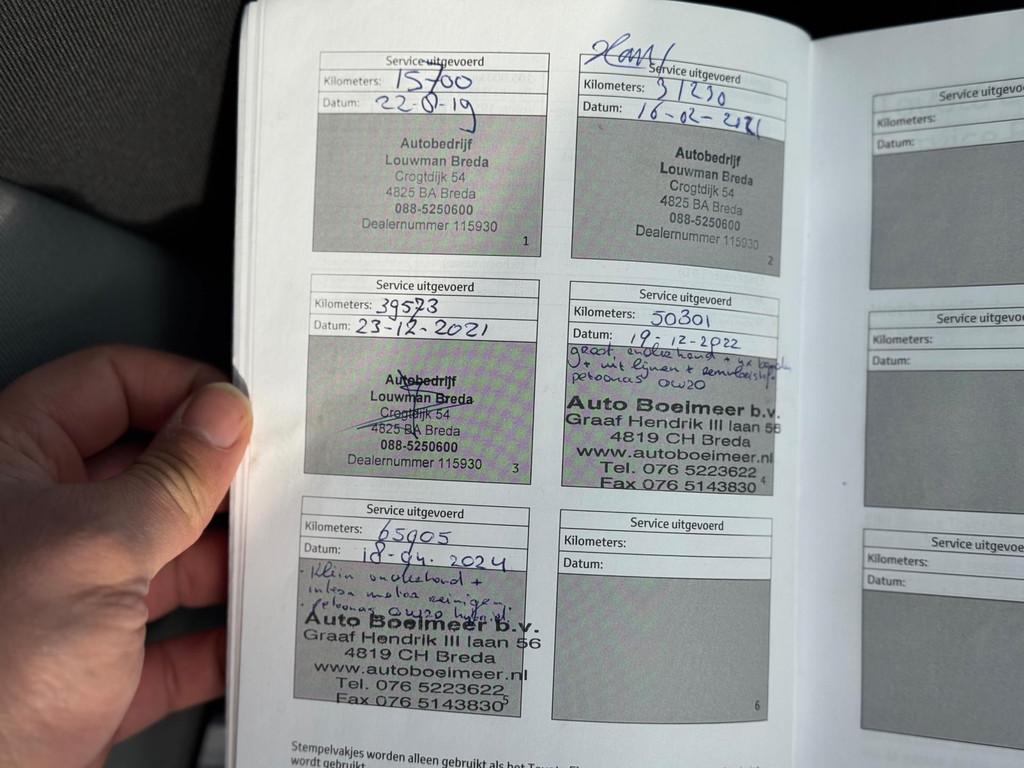 Service uitgevoerd
Kilometers: 15700
Datum: 22-8-19
Autobedrijf
Louwman Breda
Crogtdijk 54
4825 BA Breda
088-5250600
Dealernummer 115930
1
Service uitgevoerd
Kilometers: 31230
Datum: 16-02-2021
Autobedrijf
Louwman Breda
Crogtdijk 54
4825 BA Breda
088-5250600
Dealernummer 115930
2
Service uitgevoerd
Kilometers: 39573
Datum: 23-12-2021
Autobedrijf
Louwman Breda
Crogtdijk 54
4825 BA Breda
088-5250600
Dealernummer 115930
3
Service uitgevoerd
Kilometers: 50301
Datum: 19-12-2022
groot onderhoud +
+ uitlijnen +
petronas 0w20
Auto Boeimeer b.v.
Graaf Hendrik III laan 56
4819 CH Breda
www.autoboeimeer.nl
Tel. 076 5223622
Fax 076 5143830
4
Service uitgevoerd
Kilometers: 65905
Datum: 18-04-2024
- Klein onderhoud +
motor reinigen.
- petronas 0w20 hybrid.
Auto Boeimeer b.v.
Graaf Hendrik III laan 56
4819 CH Breda
www.autoboeimeer.nl
Tel. 076 5223622
Fax 076 5143830
5
Service uitgevoerd
Kilometers:
Datum:
6
Stempelvakjes worden alleen gebruikt als het
wordt gebruikt
Service uitgevo
Kilometers:
Datum:
Service uitgevo
Kilometers:
Datum:
Service uitgevoe
Kilometers:
Datum: